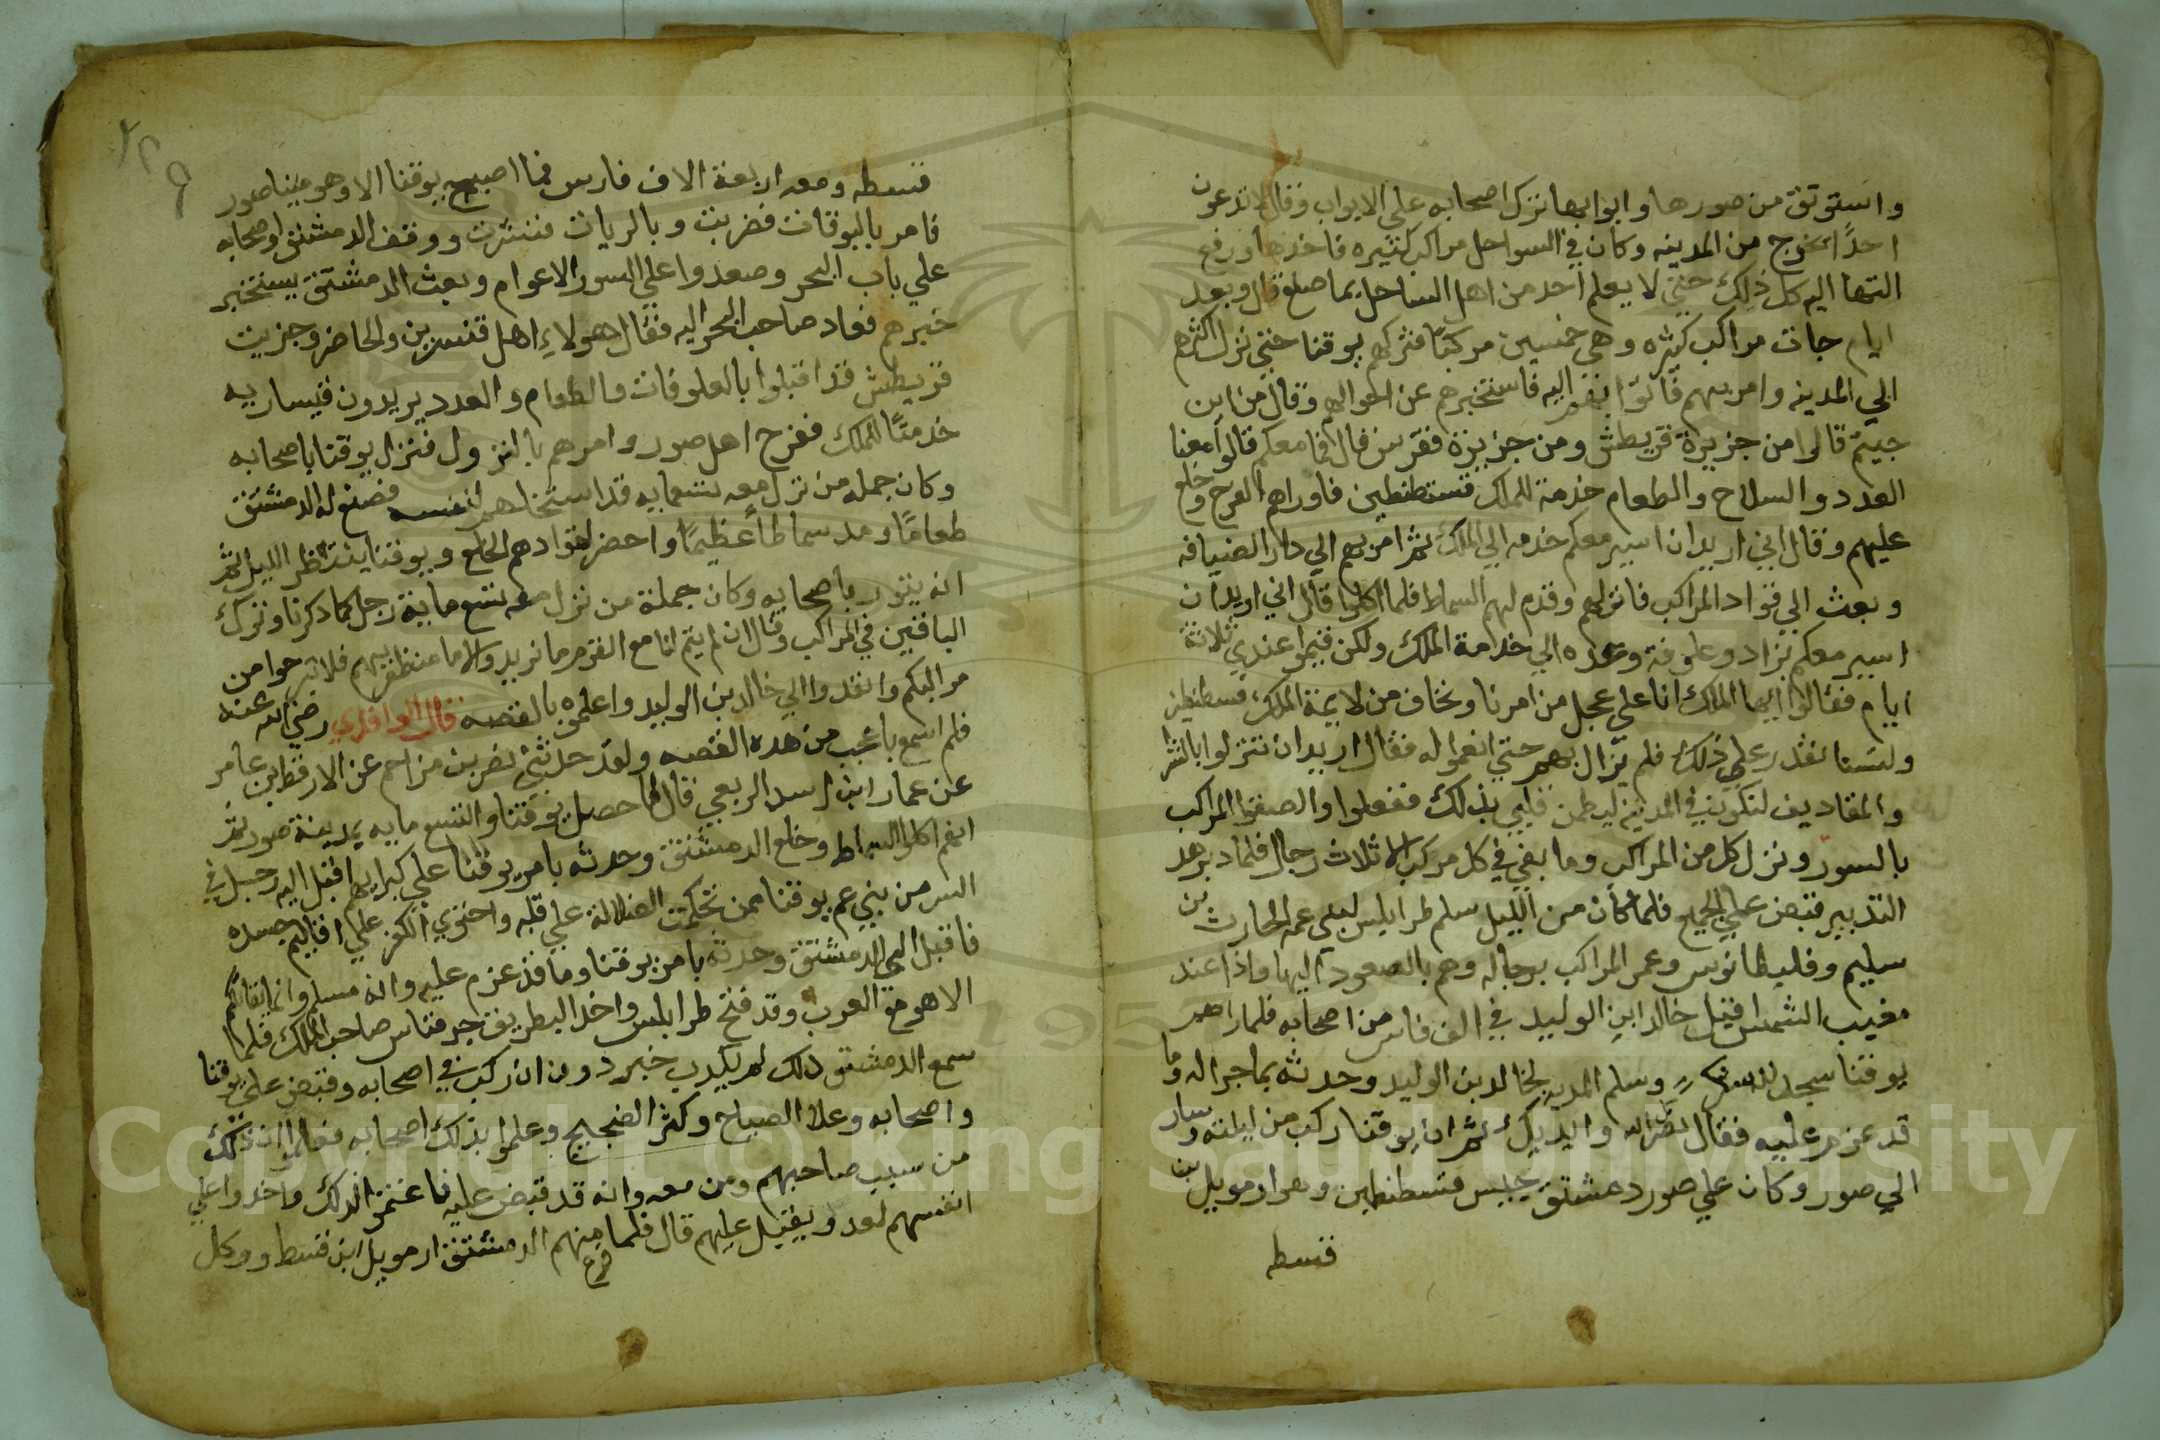 واستوثق من صورها وابوابها ترك اصحابه علي الابواب وقال لا تدعون
احدًا يخرج من المدينه وكان في السواحل مراكب كثيره فاخذها ورفع
التها اليه كل ذلك حتي لا يعلم احد من اهل الساحل بما صنع قال وبعد
ايام جات مراكب كثيره وهي خمسين مركبًا فتركهم يوقنا حتي نزل اكثرهم
الي المدينه وامر بهم فاتوا بهم اليه فاستخبرهم عن احوالهم وقال من اين
جيتم قالوا من جزيرة قريطش ومن جزيرة قبرس قال فما معكم قالوا معنا
العدد والسلاح والطعام خدمة للملك قسطنطين فاوراهم الفرح وخلع
عليهم وقال اني اريد ان اسير معكم خدمه الي الملك ثم امر بهم الي دار الضيافه
وبعث الي قواد المراكب فانزلهم وقدم لهم السماط فلما اكلوا قال اني اريد ان
اسير معكم بزاد وعلوفة وعده الي خدمة الملك ولكن قيموا عندي ثلاثة
ايام فقالوا ايها الملك انا علي عجل من امرنا ونخاف من لايمة الملك قسطنطين
ولسنا نقدر علي ذلك فلم يزال بهم حتي انعموا له فقال اريد ان تنزلوا بالشراع
والمقاديف لتكون في المدينه ليطمن قلبي بذلك ففعلوا والصقوا المراكب
بالسور ونزل كل من المراكب وما بقي في كل مركب الا ثلاث رجال فلما دبر هذا
التدبير قبض علي الجميع فلما كان من الليل سلم طرابلس لبني عمه الحارث بن
سليم وفليطانوس وعمر المراكب برجاله وهم بالصعود اليها واذا عند
مغيب الشمس اقبل خالد ابن الوليد في الف فارس من اصحابه فلما راهم
يوقنا سجد لله شكرًا وسلم المدينه لخالد بن الوليد وحدثه بما جرا له وما
قد عزم عليه فقال نصرك الله وايدك ثم ان يوقنا ركب من ليلته وسار
الي صور وكان علي صور دمشتق جيس قسطنطين وهو ارمويل بن
قسطه
قسطه ومعه اربعة الاف فارس فما اصبح يوقنا الا وهو بمينا صور
فامر بالبوقات فضربت وبالريات فنشرت ووقف الدمشتق واصحابه
علي باب البحر وصعدوا علي السور الاعوام وبعث الدمشتق يستخبر
خبرهم فعاد صاحب البحر اليه فقال هولاء اهل قنسرين والحاضر وجزيت
قريطش قد اقبلوا بالعلوفات والطعام والعدد يريدون قيساريه
خدمتًا للملك ففرح اهل صور وامرهم بالنزول فنزل يوقنا باصحابه
وكان جمله من نزل معه تسعمايه قد استخاهم لنفسه فصنع له الدمشتق
طعامًا ومد سماطًا عظيمًا واحضر لقوادهم الخلع ويوقنا ينتظر الليل ثم
انه يثور باصحابه وكان جملة من نزل معه تسع ماية رجل كما ذكرنا وترك
الباقيين في المراكب وقال ان لم يتم لنا مع القوم ما نريد والا ما ننظفر بهم فلا تبرحوا من
مراكبكم وانفدوا الي خالد بن الوليد واعلموه بالقصه قال الواقدي رضي الله عنه
فلم اسمع باعجب من هذه القصه ولقد حدثني نصر بن مزاحم عن الارقط ابن عامر
عن عمار ابن اسد الربعي قال لما حصل يوقنا والتسع مايه بمدينة صور ثم
انهم اكلوا السماط وخلع الدمشتق وحدثه بامر يوقنا علي كبرايهم اقبل اليه رجل في
السر من بني عم يوقنا ممن تحكمت الضلالة علي قلبه واحتوي الكفر علي اقاليم جسده
فاقبل الي الدمشتق وحدثه بامر يوقنا وما قد عزم عليه وانه مسلم وانما يقاتلكم
الا هو مع العرب وقد فتح طرابلس واخد البطريق جرفناس صاحب الملك فلما
سمع الدمشتق ذلك لم يكدب خبر دون ان ركب في اصحابه وقبض علي يوقنا
واصحابه وعلا الصياح وكثر الضجيج وعلموا بذلك اصحابه فعلموا ان ذلك
من سبب صاحبهم ومن معه وانه قد قبض عليه فاغتموا لذلك واخدوا علي
انفسهم لعدو يقبل عليهم قال فلما فرغ منهم الدمشتق ارمويل ابن قسط ووكل